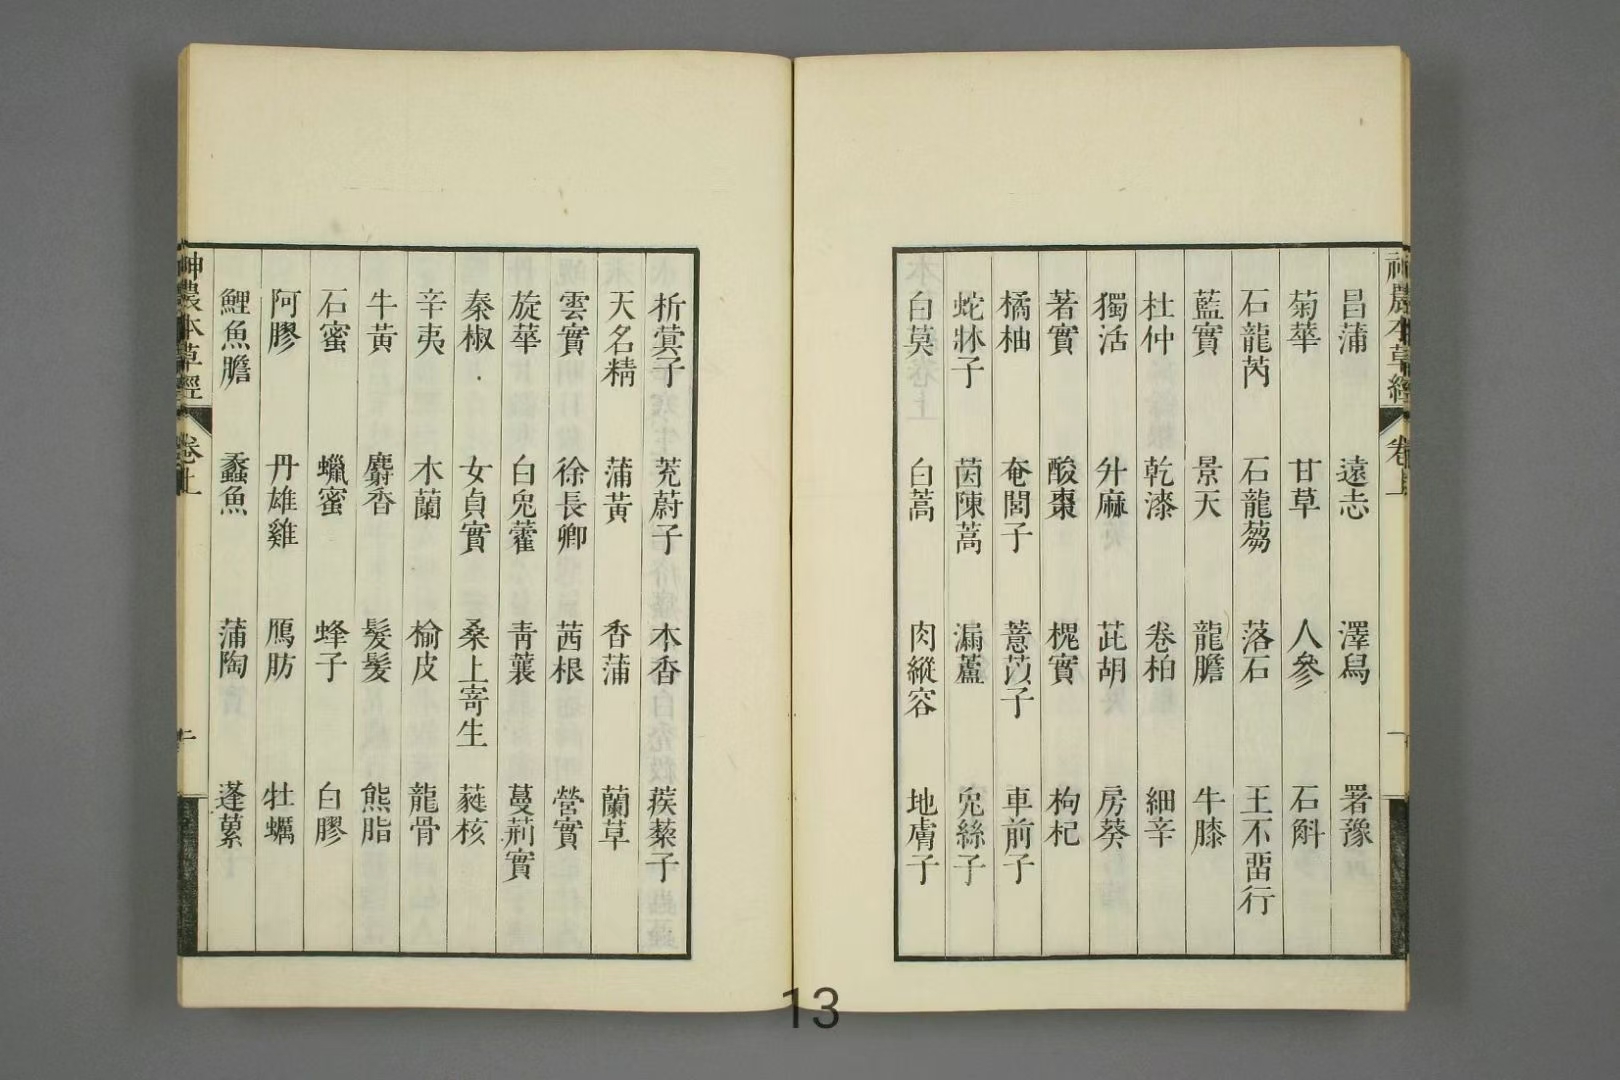 神農本草經 卷上 一
昌蒲 遠志 澤舃 署豫
菊華 甘草 人參 石斛
石龍芮 石龍蒭 落石 王不畱行
藍實 景天 龍膽 牛膝
杜仲 乾漆 卷柏 細辛
獨活 升麻 茈胡 房葵
蓍實 酸棗 槐實 枸杞
橘柚 奄閭子 薏苡子 車前子
蛇牀子 茵陳蒿 漏蘆 兔絲子
白莫 白蒿 肉縱容 地膚子
析蓂子 茺蔚子 木香 蒺藜子
天名精 蒲黃 香蒲 蘭草
雲實 徐長卿 茜根 營實
旋華 白兔藿 青蘘 蔓荊實
秦椒 女貞實 桑上寄生 蕤核
辛夷 木蘭 榆皮 龍骨
牛黃 麝香 髮髲 熊脂
石蜜 蠟蜜 蜂子 白膠
阿膠 丹雄雞 鴈肪 牡蠣
鯉魚膽 蠡魚 蒲陶 蓬蔂
神農本草經 卷上
13